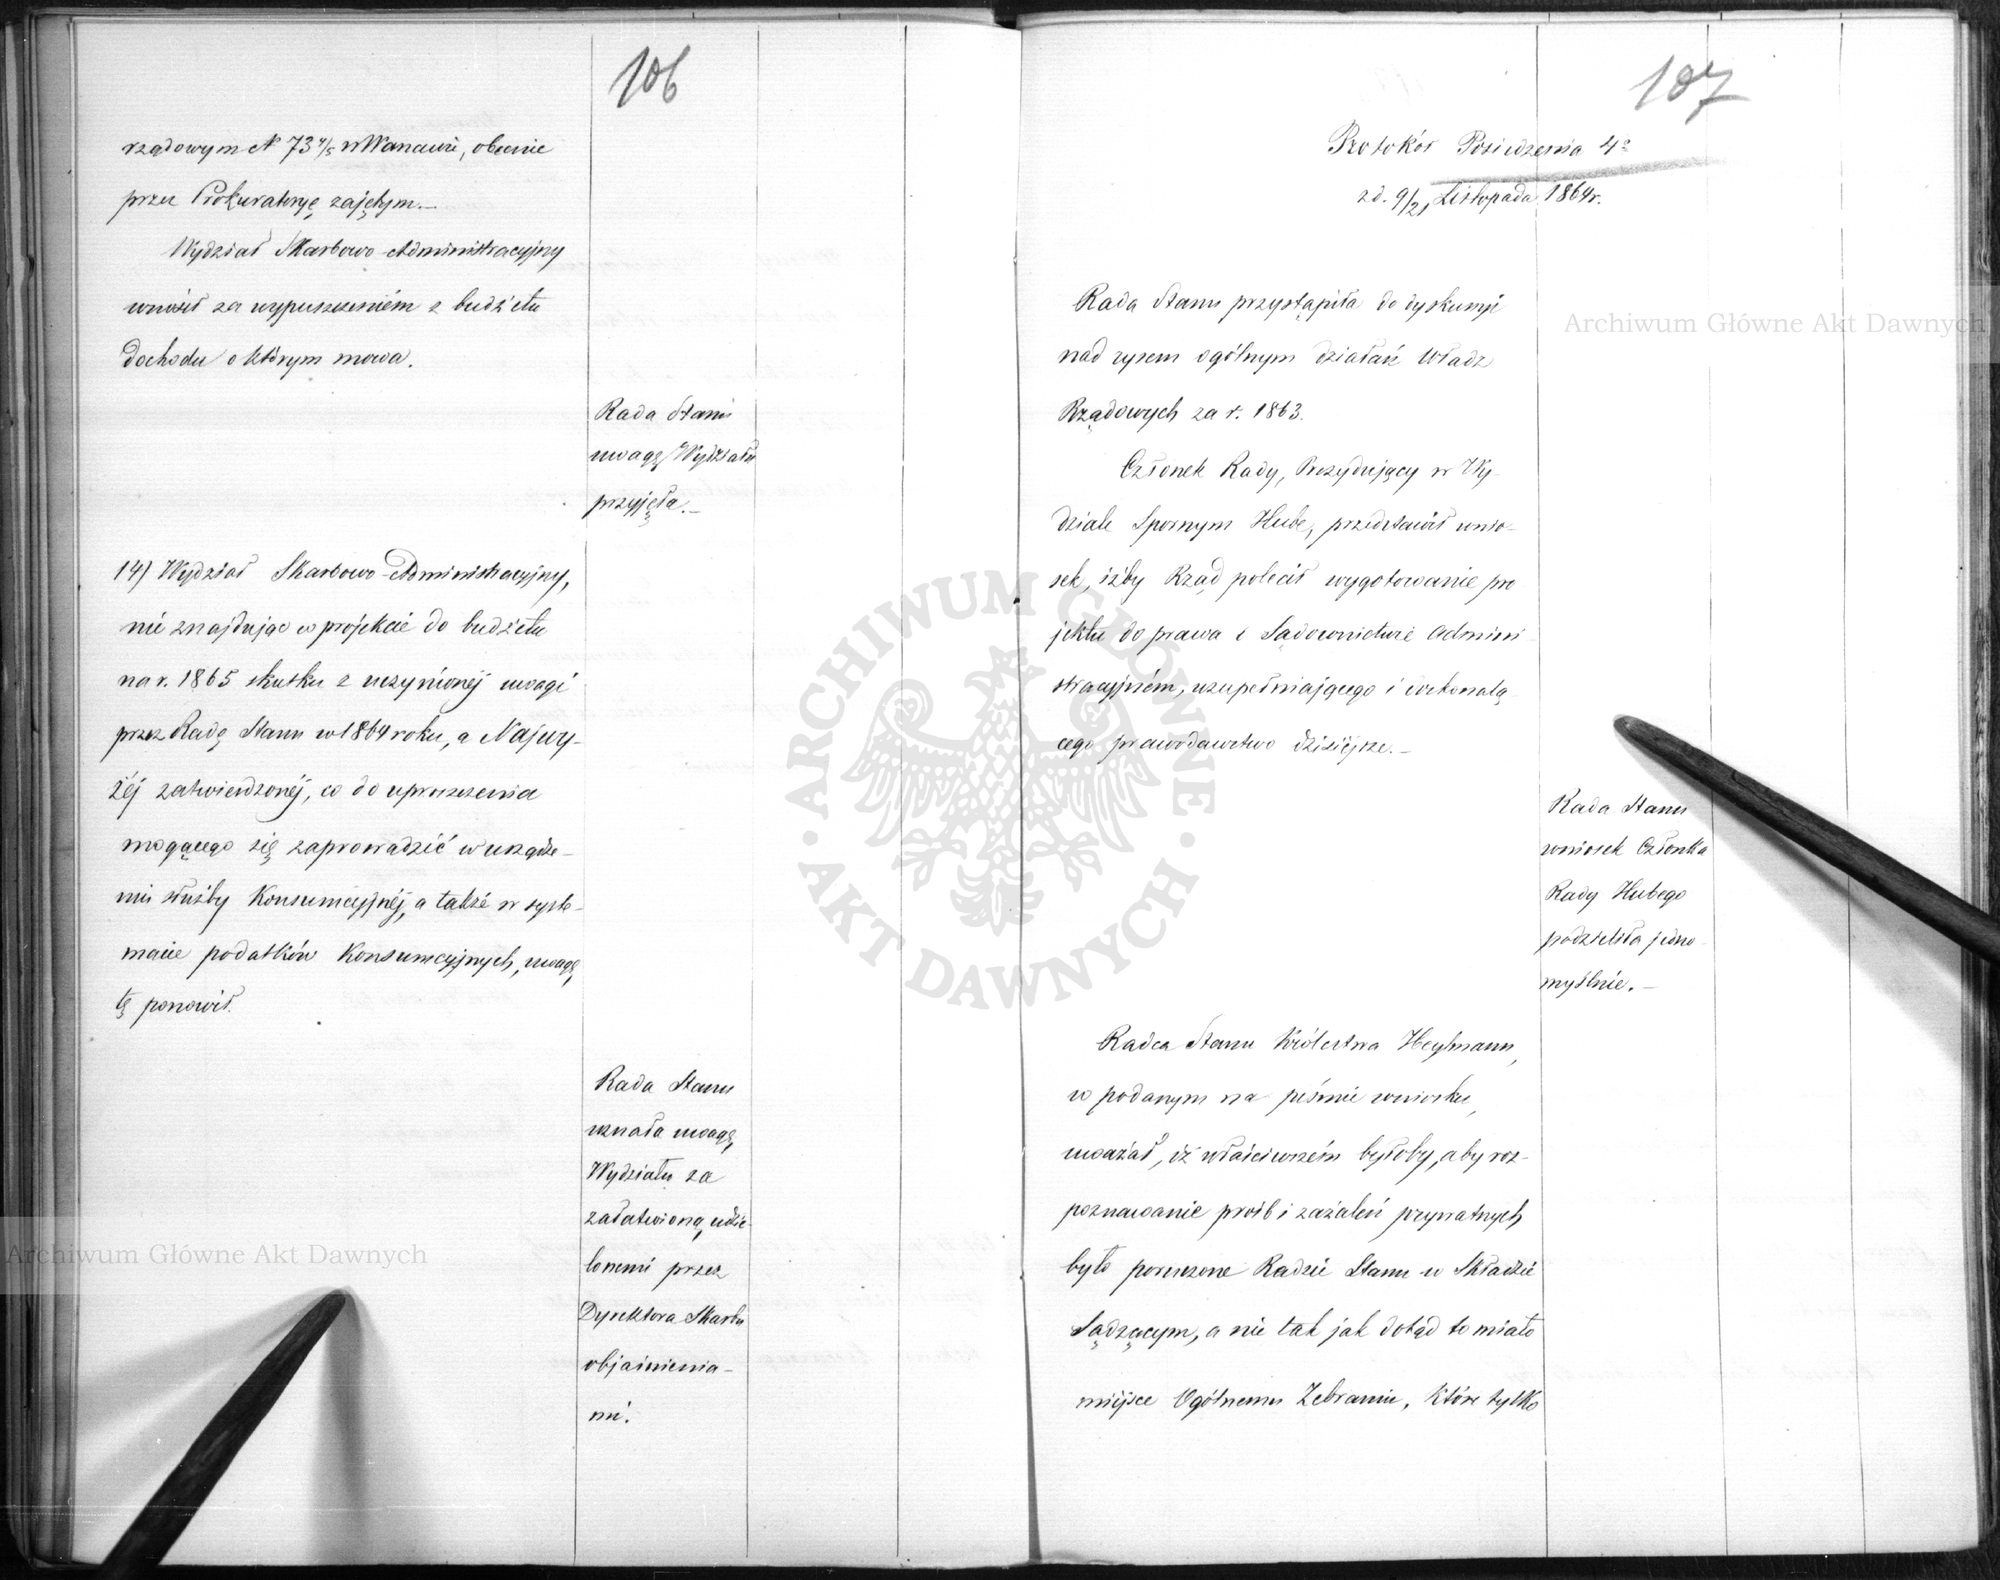 106
rządowym N 73 4/5 w Warszawie, obecnie
przez Prokuratoryę zajętym.—
Wydział Skarbowo-Administracyjny
wnosił za wypuszczeniém z budżetu
dochodu o którym mowa.
Rada Stanu
uwagę Wydziału
przyjęła.—
14) Wydział Skarbowo-Administracyjny,
nie znajdując w projekcie do budżetu
na r. 1865 skutku z uczynionéj uwagi
przez Radę Stanu w 1864 roku, a Najwy-
żéj zatwierdzonéj, co do uproszczenia
mogącego się zaprowadzić w urządze-
niu służby Konsumcyjnéj, a także w syste-
macie podatków Konsumcyjnych, uwagę
tę ponowił.
Rada Stanu
uznała uwagę
Wydziału za
załatwioną udzie-
lonemi przez
Dyrektora Skarbu
objaśnienia-
mi.
107
Protokół Posiedzenia 4º
z d. 9/21 Listopada 1864 r.
Rada Stanu przystąpiła do dyskussyi
nad rysem ogólnym działań Władz
Rządowych za r. 1863.
Członek Rady, Prezydujący w Wy-
dziale Spornym Hube, przedstawił wnio-
sek, iżby Rząd polecił wygotowanie pro
jektu do prawa o Sądownictwie Admini-
stracyjném, uzupełniającego i doskonalą-
cego prawodawstwo dzisiejsze.—
Rada Stanu
wniosek Członka
Rady Hubego
podzieliła jedno-
myślnie.—
Radca Stanu Królestwa Heylmann,
w podanym na piśmie wniosku,
uważał, iż właściwszém byłoby, aby roz-
poznawanie próśb i zażaleń prywatnych
było poruczone Radzie Stanu w Składzie
Sądzącym, a nie tak jak dotąd to miało
miejsce Ogólnemu Zebraniu, które tylko
Archiwum Główne Akt Dawnych
Archiwum Główne Akt Dawnych
ARCHIWUM GŁÓWNE · AKT DAWNYCH ·